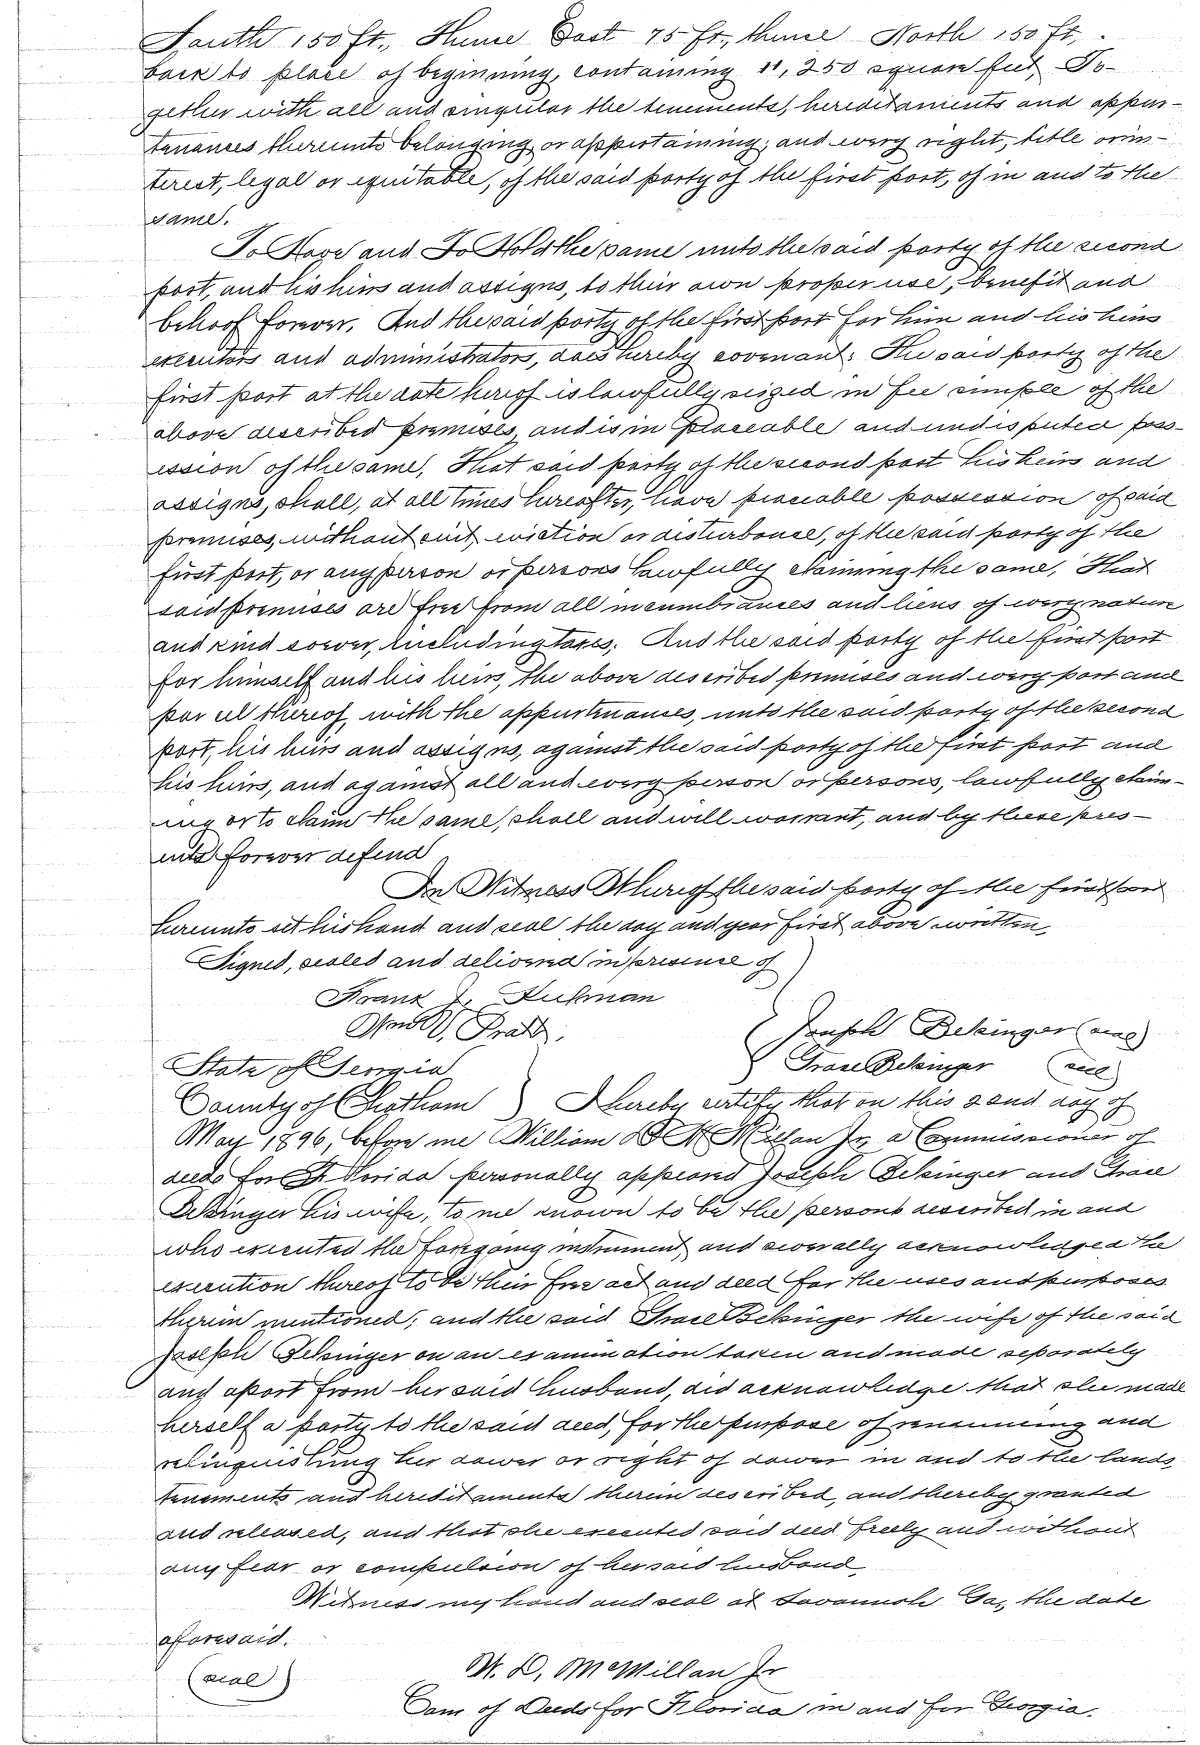 South 150 ft., thence East 75 ft., thence North 150 ft,
back to place of beginning, containing 11,250 square feet. To-
gether with all and singular the tenements, hereditaments and appur-
tenances thereunto belonging or appertaining; and every right, title or in-
terest, legal or equitable, of the said party of the first part, of in and to the
same.
To Have and To Hold the same unto the said party of the second
part, and his heirs and assigns, to their own proper use, benefit and
behoof forever. And the said party of the first part for him and his heirs
executors and administrators, does hereby covenant: The said party of the
first part at the date hereof is lawfully seized in fee simple of the
above described premises, and is in peaceable and undisputed poss-
ession of the same, That said party of the second part his heirs and
assigns, shall, at all times hereafter, have peaceable possession of said
premises, without suit, eviction or disturbance, of the said party of the
first part, or any person or persons lawfully claiming the same, That
said premises are free from all incumbrances and liens of every nature
and kind soever, including taxes. And the said party of the first part
for himself and his heirs, the above described premises and every part and
par cel thereof, with the appurtenances, unto the said party of the second
part, his heirs and assigns, against the said party of the first part and
his heirs, and against all and every person or persons, lawfully claim-
ing or to claim the same, shall and will warrant, and by these pres-
ents forever defend
In Witness Whereof the said party of the first part
hereunto set his hand and seal the day and year first above written.
Signed, sealed and delivered in presence of )
Frank J.
Wm O, Pratt,
Joseph Bekinger (seal)
Grace Bekinger (seal)
State of Georgia
County of Chatham ) I hereby certify that on this 22nd day of
May 1896, before me William D McMillan Jr, a Commissioner of
deeds for Florida personally appeared Joseph Bekinger and Grace
Bekinger his wife, to me known to be the persons described in and
who executed the foregoing instrument, and severally acknowledged the
execution thereof to be their free act and deed for the uses and purposes
therein mentioned; and the said Grace Bekinger the wife of the said
Joseph Bekinger on an examination taken and made separately
and apart from her said husband, did acknowledge that she made
herself a party to the said deed, for the purpose of renouncing and
relinquishing her dower or right of dower in and to the lands
tenements and hereditaments therein described, and thereby granted
and released, and that she executed said deed freely and without
any fear or compulsion of her said husband.
Witness my hand and seal at Savannah Ga, the date
aforesaid.
(seal)
W. D, McMillan Jr
Com of Deeds for Florida in and for Georgia.